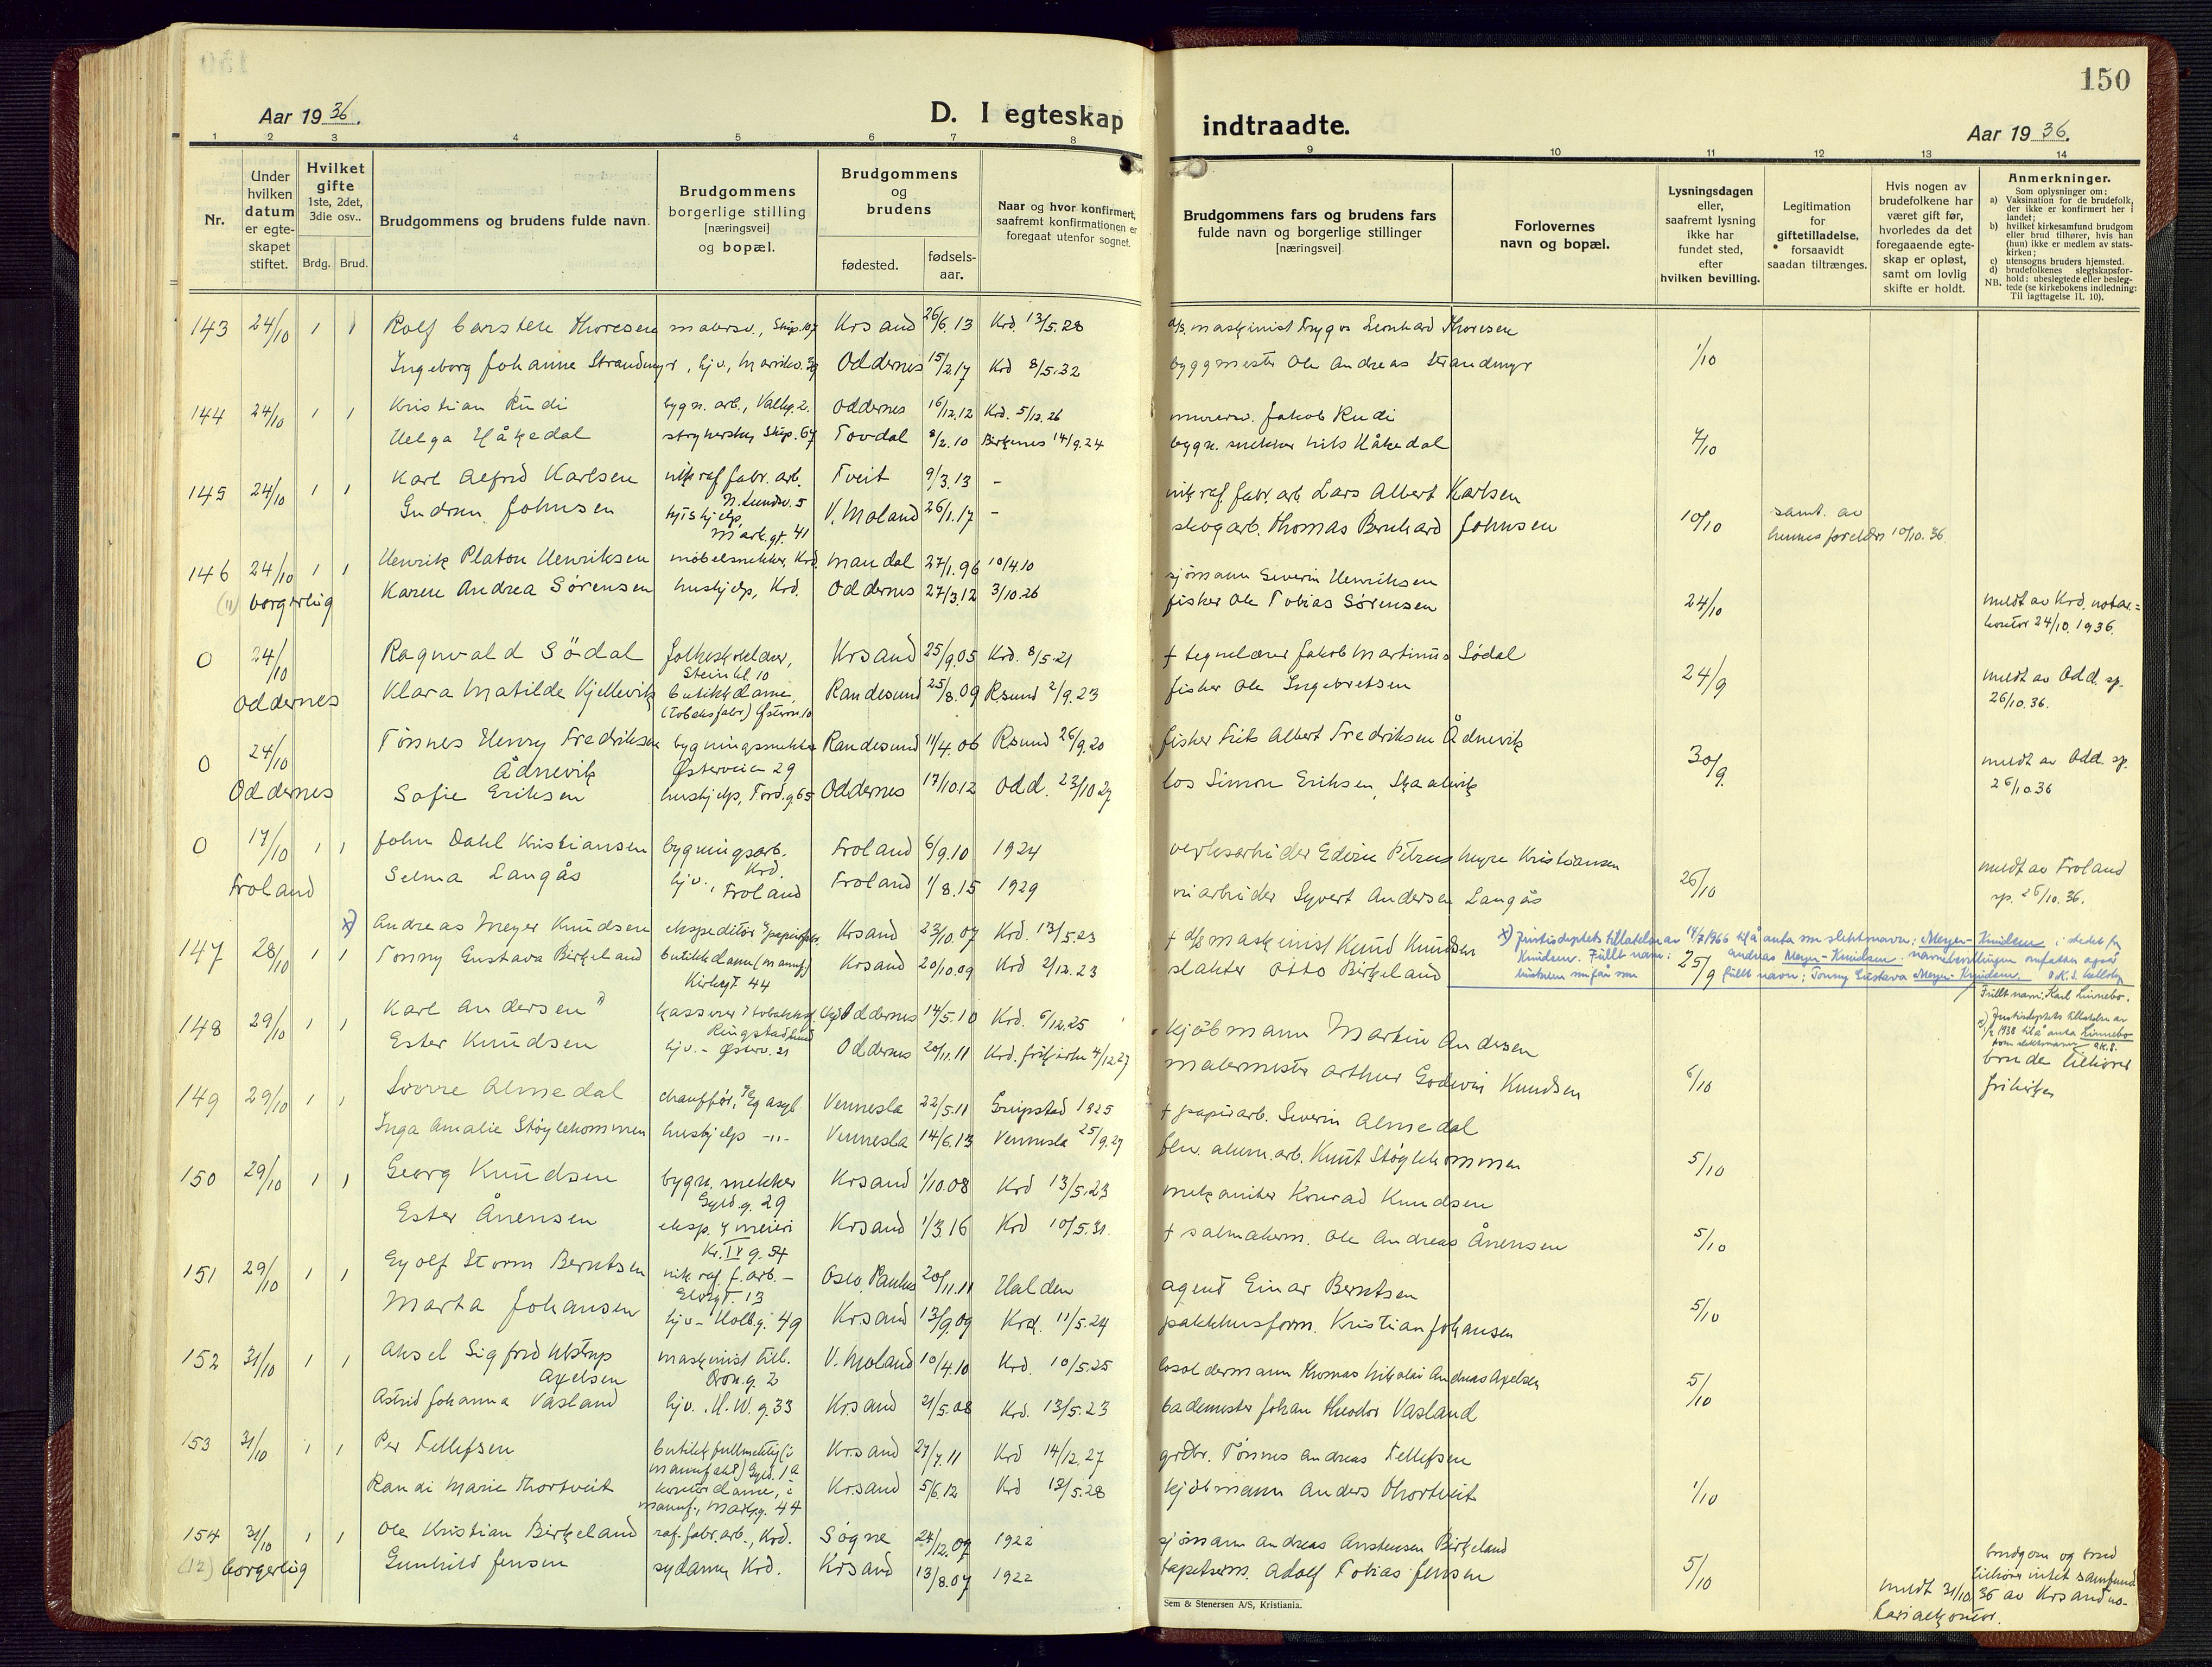 150
Aar 1936.
D. I egteskap indtraadte.
Aar 1936.
1 2 3 4 5 6 7 8 9 10 11 12 13 14
Nr.
Under hvilken datum er egteskapet stiftet.
Hvilket gifte 1ste, 2det, 3die osv..
Brdg. Brud.
Brudgommens og brudens fulde navn.
Brudgommens borgerlige stilling [næringsvei] og bopæl.
Brudgommens og brudens
fødested.
fødsels-aar.
Naar og hvor konfirmert, saafremt konfirmationen er foregaat utenfor sognet.
Brudgommens fars og brudens fars fulde navn og borgerlige stillinger [næringsvei]
Forlovernes navn og bopæl.
Lysningsdagen eller, saafremt lysning ikke har fundet sted, efter hvilken bevilling.
Legitimation for giftetilladelse, forsaavidt saadan tiltrænges.
Hvis nogen av brudefolkene har været gift før, hvorledes da det foregaaende egteskap er opløst, samt om lovlig skifte er holdt.
Anmerkninger.
Som oplysninger om:
a) Vaksination for de brudefolk, der ikke er konfirmert her i landet;
b) hvilket kirkesamfund brudgom eller brud tilhører, hvis han (hun) ikke er medlem av statskirken;
c) utensogns bruders hjemsted.
d) brudefolkenes slegtskapsforhold: ubeslegtede eller beslegtede (se kirkebokens indledning: Til iagttagelse II. 10).
NB.
143 24/10 1 1 Rolf Carsten Thoresen malersv., Skip. 107 Krsand 26/6.13 Krd. 13/5.28 d/s. maskinist Trygve Leonhard Thoresen
Ingeborg Johanne Strandmyr, hjv., Marviksv. Oddernes 15/2.17 Krd 8/5.32 byggmester Ole Andreas Strandmyr 1/10
144 24/10 1 1 Kristian Rudi bygn. arb., Valhg. 2. Oddernes 16/12.12 Krd. 5/12.26 murersv. Jakob Rudi
Helga Håkedal strykerske, Skip. 67 Tovdal 8/2.10 Birkenes 14/9.24 bygn. snekker Nils Håkedal 7/10
145 24/10 1 1 Karl Alfred Karlsen nik raf fabr. arb. N. Lundsv. 5 Tveit 9/3.13 - nik raf. fabr. arb Lars Albert Karlsen
Gudrun Johnsen hushjelp, Mark.gt. 41 V. Moland 26/1.17 - skogarb. Thomas Bernhard Johnsen 10/10 samt. av hennes foreldre 10/10.36
146 24/10 1 1 Henrik Platou Henriksen møbelsnekker, Krd. Mandal 27/1.96 10/4.10 sjømann Severin Henriksen
(11) borgerlig Karen Andrea Sørensen hushjelp, Krd. Oddernes 27/3.12 3/10.26 fisker Ole Tobias Sørensen 24/10 meldt av Krd. notar.=kontor 24/10.1936.
0 24/10 Ragnvald Sødal Steinkl. 10 Krsand 25/9.05 Krd. 8/5.21 + tegnelærer Jakob Martinus Sødal
Oddernes Klara Matilde Kjellevik butikkdame, (tobaksfabr) Østervn. 10 Randesund 25/8.09 Rsund 2/9.23 fisker Ole Ingebretsen 24/9 meldt av Odd. sp. 26/10.36.
0 24/10 Tønnes Henry Fredriksen Ådnevik bygningssnekker Østerveien 29 Randesund 11/4.06 Rsund 26/9.20 fisker Frits Albert Fredriksen Ådnevik
Oddernes Sofie Eriksen hushjelp, Tord.g. 65 Oddernes 17/10.12 Odd. 23/10 27 los Simon Eriksen, Skaalevik 30/9. meldt av Odd. sp. 26/10.36
0 17/10 1 1 John Dahl Kristiansen bygningsarb. Krd. Froland 6/9.10 1924 verksarbeider Edvin Petrus Kristiansen
Froland Selma Langås hjv., Froland Froland 1/8.15 1929 veiarbeider Syvert Andersen Langås 26/10 meldt av Froland sp. 26/10.36.
147 28/10 1 1 x) Andreas Meyer Knudsen ekspeditør i papirfor. Krsand 23/10.07 Krd. 13/5.23 + d/s maskinist Knud Knudsen
Tonny Gustava Birkeland butikkdame (manuf) Kirkegt 44 Krsand 20/10.09 Krd 2/12.23 slakter Otto Birkeland 25/9
x) Justisdeptets tillatelse av 14/7 1966 til å anta som slektsnavn: Meyer-Knudsen i stedet for
Knudsen. Fullt navn: Andreas Meyer-Knudsen. navneendringen omfatter også
hustruen som får som fullt navn: Tonny Gustava Meyer-Knudsen.
148 29/10 1 1 Karl Andersen x) kasserer i tobakksf. Oddernes 14/5.10 Krd. 6/12.25 kjøbmann Martin Andersen
Fullt navn: Karl Linnebo. x) Justisdeptets tillatelse av 1/2 1938 til å anta Linnebo som slektsnavn
Ester Knudsen hjv. - Østerv. 21 Oddernes 20/11.11 Krd. frikirke 4/12.27 malermester Arthur Godwin Knudsen 6/10 brude tilhører frikirken
149 29/10 1 1 Sverre Almedal chauffør, Eg asyl Vennesla 22/5.11 Gripstad 1925 + papirarb. Severin Almedal
Inga Amalie Støylekommen hushjelp -"- Vennesla 14/6.13 Vennesla 25/9.27 alum.arb. Knut Støylekommen 5/10
150 29/10 1 1 Georg Knudsen bygn. snekker Gyld.g. 29 Krsand 1/10.08 Krd 13/5.23 mekaniker Konrad Knudsen
Ester Ånensen eksp. i meieri Kr. IV g. 54 Krsand 1/3.16 Krd 10/5.31. + salmakerm. Ole Andreas Ånensen 5/10
151 29/10 1 1 Eyolf Storm Berntsen nik raf. f. arb. - Elvegt. 13 Oslo, Paulus 20/11.11 Halden agent Einar Berntsen
Marta Johansen hjv - Holb.g. 49 Krsand 13/9.09 Krd. 11/5.24 pakkhusform. Kristian Johansen 5/10
152 31/10 1 1 Aksel Sigfred Ulstrup Axelsen maskinist till. Dron.g. 2 V. Moland 10/4.10 Krd. 10/5.25 losoldermann Thomas Nikolai Andreas Axelsen
Astrid Johanna Vasland hjv. H.W.g. 33 Krsand 21/5.08 Krd. 13/5.23 bademester Johan Theodor Vasland 5/10
153 31/10 1 1 Per Tellefsen butikkfullmektig (i manufakt) Gyld. 1a Krsand 27/7.11 Krd 14/12.27 grdbr. Tønnes Andreas Tellefsen
Randi Marie Thortveit kontordame, i manuf., Markg. 44 Krsand 5/6.12 Krd 13/5.28 kjøbmann Anders Thortveit 1/10
154 31/10 1 1 Ole Kristian Birkeland raf. fabr. arb., Krd. Søgne 24/12.09 1922 sjømann Andreas Anstensen Birkeland
(12) borgerlig Gunhild Jensen sydame, Krd. Krsand 13/8.07 1922 tapetserm. Adolf Tobias Jensen 5/10 brudgom og brud tilhører intet samfund
meldt 31/10 36 av Krsand no-
tarialkontor.
Sem & Stenersen A/S, Kristiania.